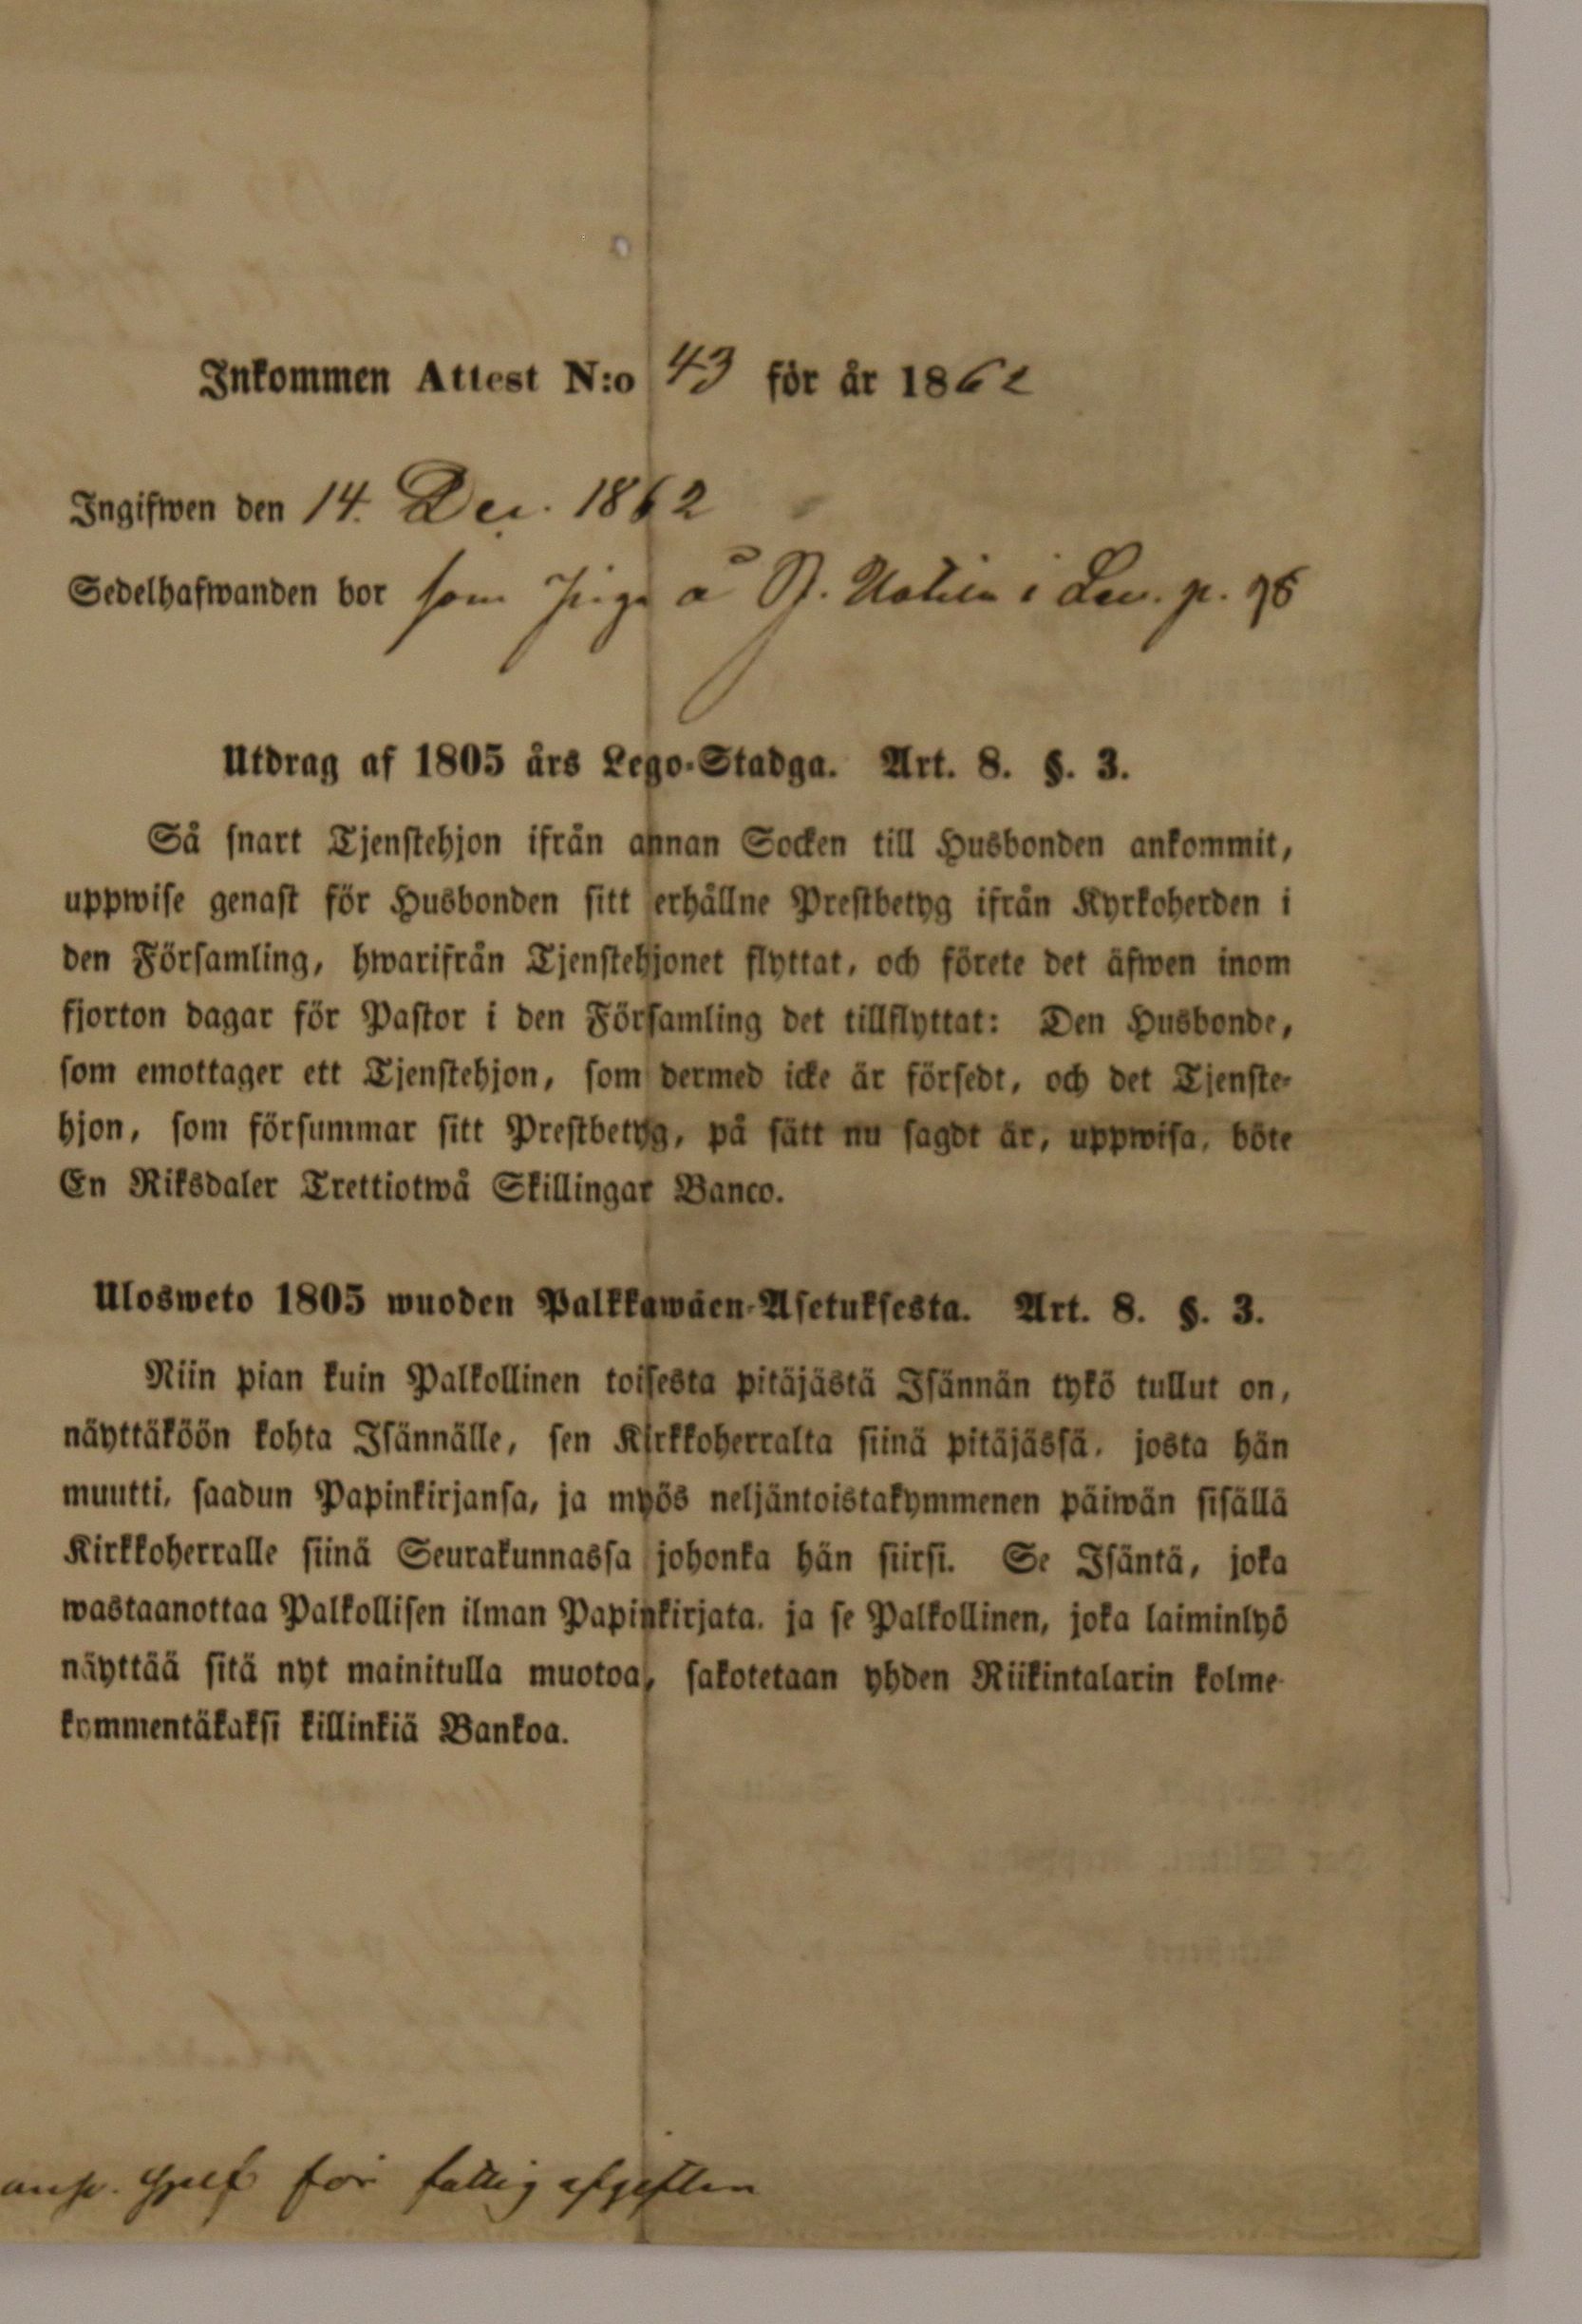 Inkommen Attest N:o 43 för år 1862
Ingifwen den 14. Dec. 1862
Sedelhafwanden bor som piga å i p. 98
Utdrag af 1805 års Lego-Stadga. Art. 8. §. 3.
Så snart Tjenstehjon ifrån annan Socken till Husbonden ankommit,
uppwise genast för Husbonden sitt erhållne Prestbetyg ifrån Kyrkoherden i
den Församling, hwarifrån Tjenstehjonet flyttat, och förete det äfwen inom
fjorton dagar för Pastor i den Församling det tillflyttat: Den Husbonde,
som emottager ett Tjenstehjon, som dermed icke är försedt, och det Tjenste-
hjon, som försummar sitt Prestbetyg, på sätt nu sagdt är, uppwisa, böte
En Riksdaler Trettiotwå Skillingar Banco.
Ulosweto 1805 wuoden Palkkawäen-Asetuksesta. Art. 8. §. 3.
Niin pian kuin Palkollinen toisesta pitäjästä Isännän tykö tullut on,
näyttäköön kohta Isännälle, sen Kirkkoherralta siinä pitäjässä, josta hän
muutti, saadun Papinkirjansa, ja myös neljäntoistakymmenen päiwän sisällä
Kirkkoherralle siinä Seurakunnassa johonka hän siirsi. Se Isäntä, joka
wastaanottaa Palkollisen ilman Papinkirjata, ja se Palkollinen, joka laiminlyö
näyttää sitä nyt mainitulla muotoa, sakotetaan yhden Riikintalarin kolme-
kymmentäkaksi killinkiä Bankoa.
för fattig afgiften